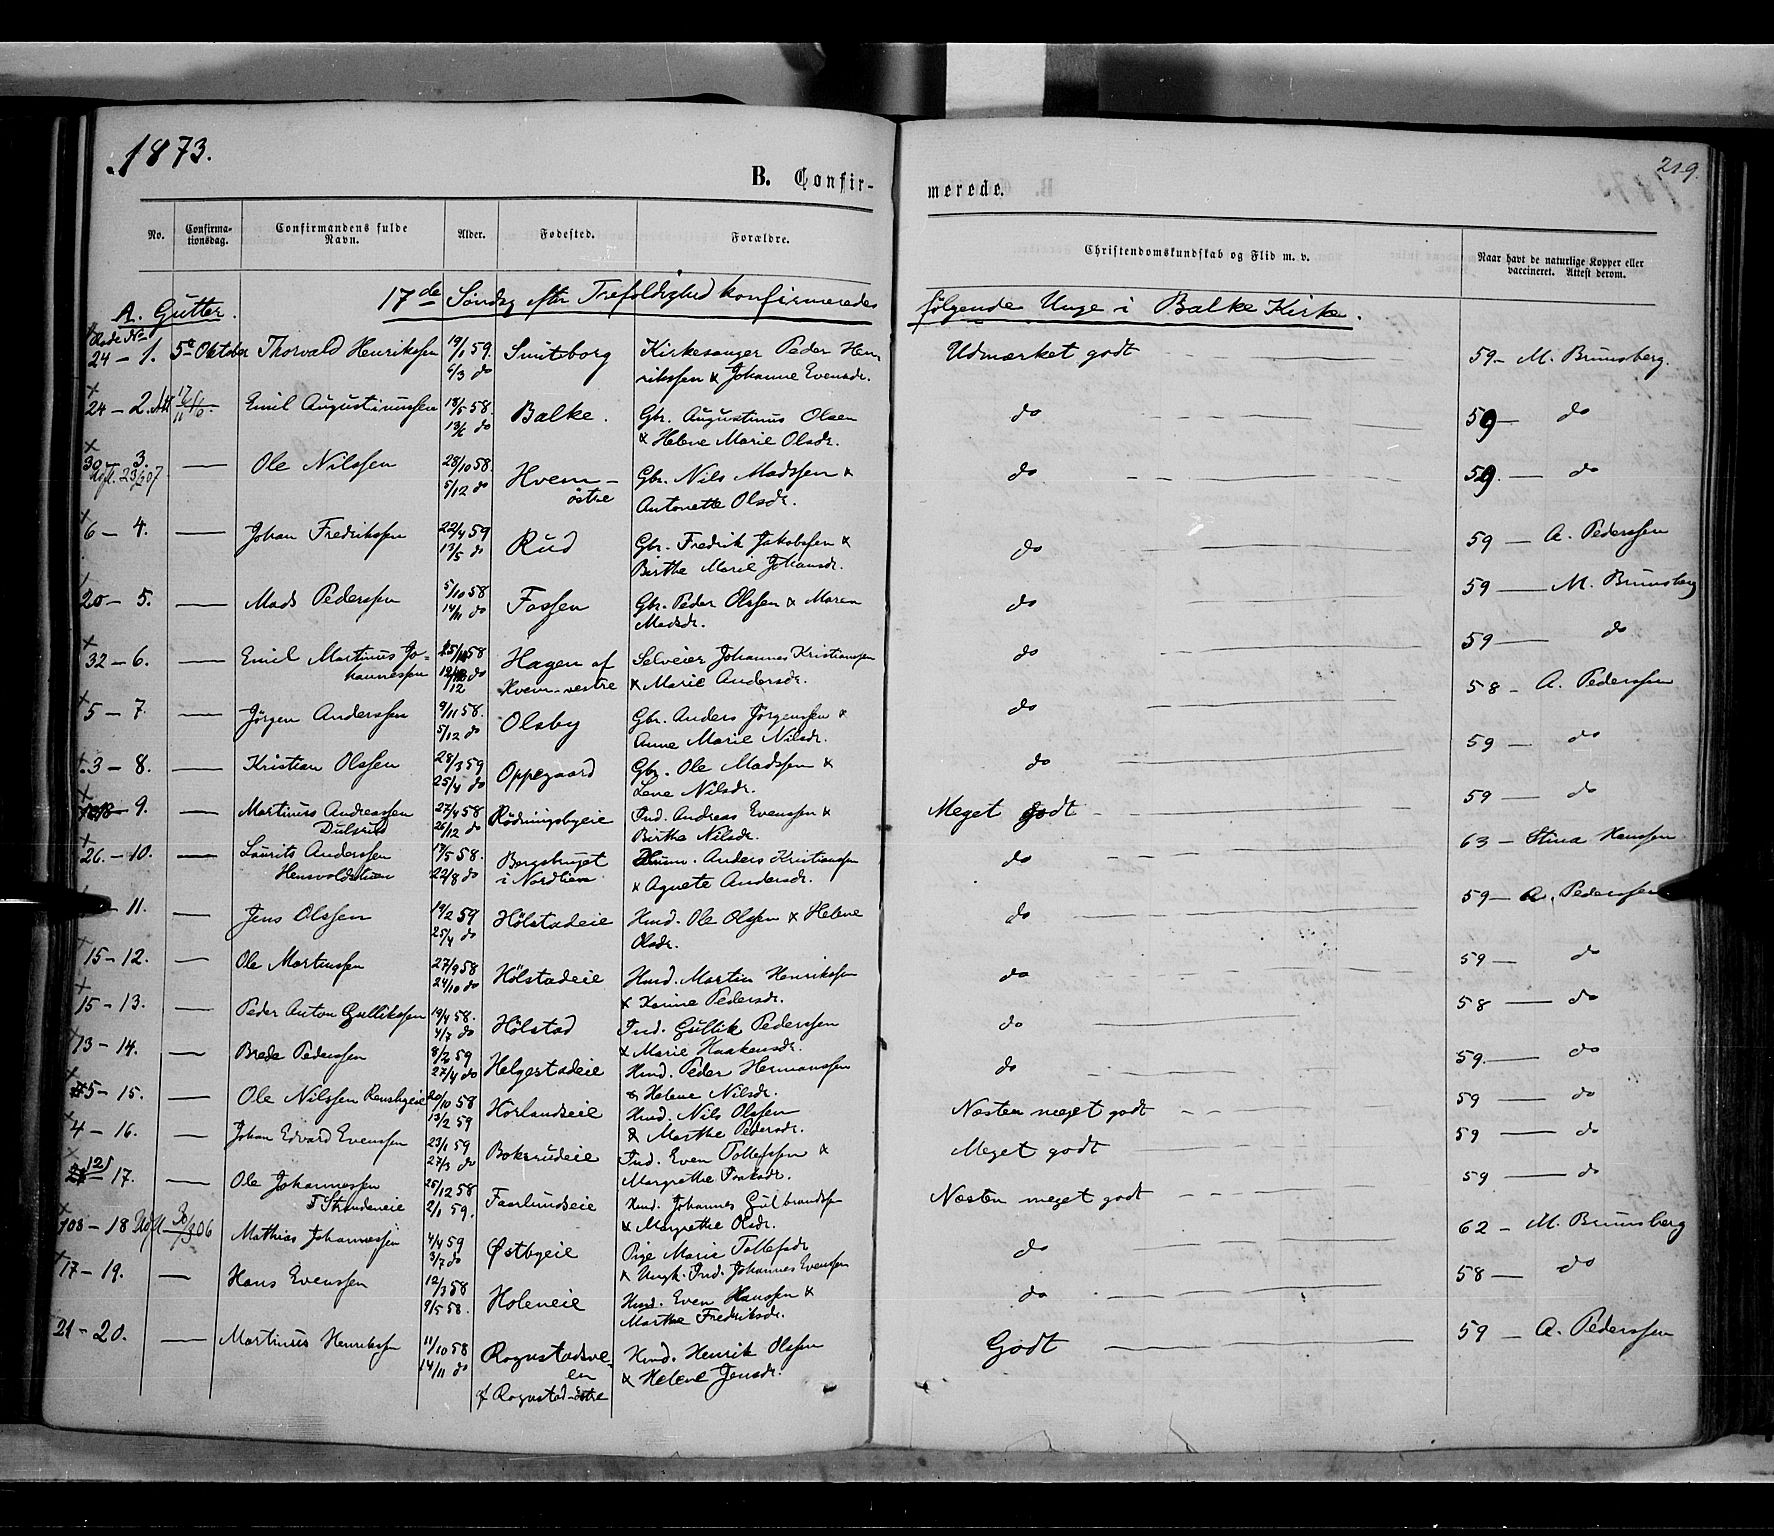 1873.
219.
B. Confir-
merede.
No.
Confirma-
tionsdag.
Confirmandens fulde
Navn.
Alder.
Fødested.
Forældre.
Christendomskundskab og Flid m. v.
Naar havt de naturlige Kopper eller
vaccineret. Attest derom.
A. Gutter.
17de Søndag efter Trefoldighed konfirmeredes
følgende Unge i Balke Kirke.
24 - 1. 5te Oktober Thorvald Henrikssen 19/1 59. Smitsborg Kirkesanger Peder Hen- Udmærket godt 59 - M. Brunsberg.
6/3 do rikssen & Johanne Evensdr.
24 - 2. Emil Augustinussen 18/5 58. Balke. Gbr. Augustinus Olsen do 59 - do
13/6 do & Helene Marie Olsdr.
30 - 3. Ole Nilssen 28/10 58. Hvem- Gbr. Nils Madssen & do 59 - do
23/2 07 5/12 do østre Antonette Olsdr.
6 - 4. Johan Fredrikssen 22/4 59 Rud Gbr. Fredrik Jakobssen & do 59 - A. Pederssen
12/5 do Birthe Marie Johansdr.
20 - 5. Mads Pederssen 5/10 58 Fossen Gbr. Peder Olssen & Maren do 59 - M. Brunsberg
14/11 do Madsdr.
32 - 6. Emil Martinus Jo- 58 Hagen af Selveier Johannes Kristianssen do 59 - do
hannessen do Hvem-vestre & Marie Andersdr.
5 - 7. Jørgen Anderssen 9/11 58. Olsby Gbr. Anders Jørgenssen & do 58 - A. Pederssen
5/12 do Anne Marie Nilsdr.
3 - 8. Kristian Olssen 28/3 59 Oppegaard Gbr. Ole Madssen & do 59 - do
25/4 do Lene Nilsdr.
9. Martinus Andreassen 27/4 58 Rødningsbyeie Ind. Andreas Evenssen & Meget godt 59 - do
Dulsrud 26/12 do Birthe Nilsdr.
26. - 10. Laurits Anderssen 17/5 58. Bergsbruget Anders Kristianssen do 63 - Stina Hanssen
Hensvoldstuen 22/8 do i Nordlien & Agnete Andersdr.
11. Jens Olssen 19/2 59 Hølstadeie Hmd. Ole Olssen & Helene do 59 - A. Pederssen
25/4 do Olsdr.
15 - 12. Ole Martinssen 27/9 58 Hølstadeie Hmd. Martin Henrikssen do 59 - do
24/10 do & Karine Pedersdr.
15 - 13. Peder Anton Gullikssen 19/4 58. Hølstad Ind. Gullik Pederssen do 58 - do
4/7 do & Marie Haakensdr.
13 - 14. Brede Pederssen 8/2 59 Helgestadeie Hmd. Peder Hermanssen do 59. - do
27/4 do & Helene Nilsdr.
5 - 15. Ole Nilssen 20/10 58 Korlandseie Hmd. Nils Olssen Næsten meget godt 59 - do
13/2 59 & Marthe Pedersdr.
4 - 16. Johan Edvard Evenssen 23/1 59 Boksrudeie Ind. Even Tollefssen & Meget godt 59 - do
27/3 do Margrethe
121 17. Ole Johannessen 25/12 58 Faarlundseie Hmd. Johannes Gulbrandssen Næsten meget godt 59 - do
Strandeneie 2/1 59. & Margrethe Olsdr.
103 - 18 06 Mathias Johannessen 4/4 59 Østbyeie Pige Marie Tollefsdr do 62 - M. Brunsberg
3/7 do & Ungk. Ind. Johannes Evenssen
17 - 19. Hans Evenssen 12/3 58 Holeneie Hmd. Even Hanssen & do 58 - do
9/5 58. Marthe Fredriksdr.
21 - 20. Martinus Henrikssen 11/10 58 Rognstadsve- Hmd. Henrik Olssen Godt 59 - A. Pederssen
14/11 do en & Helene Jensdr.
af Rognstad-østre